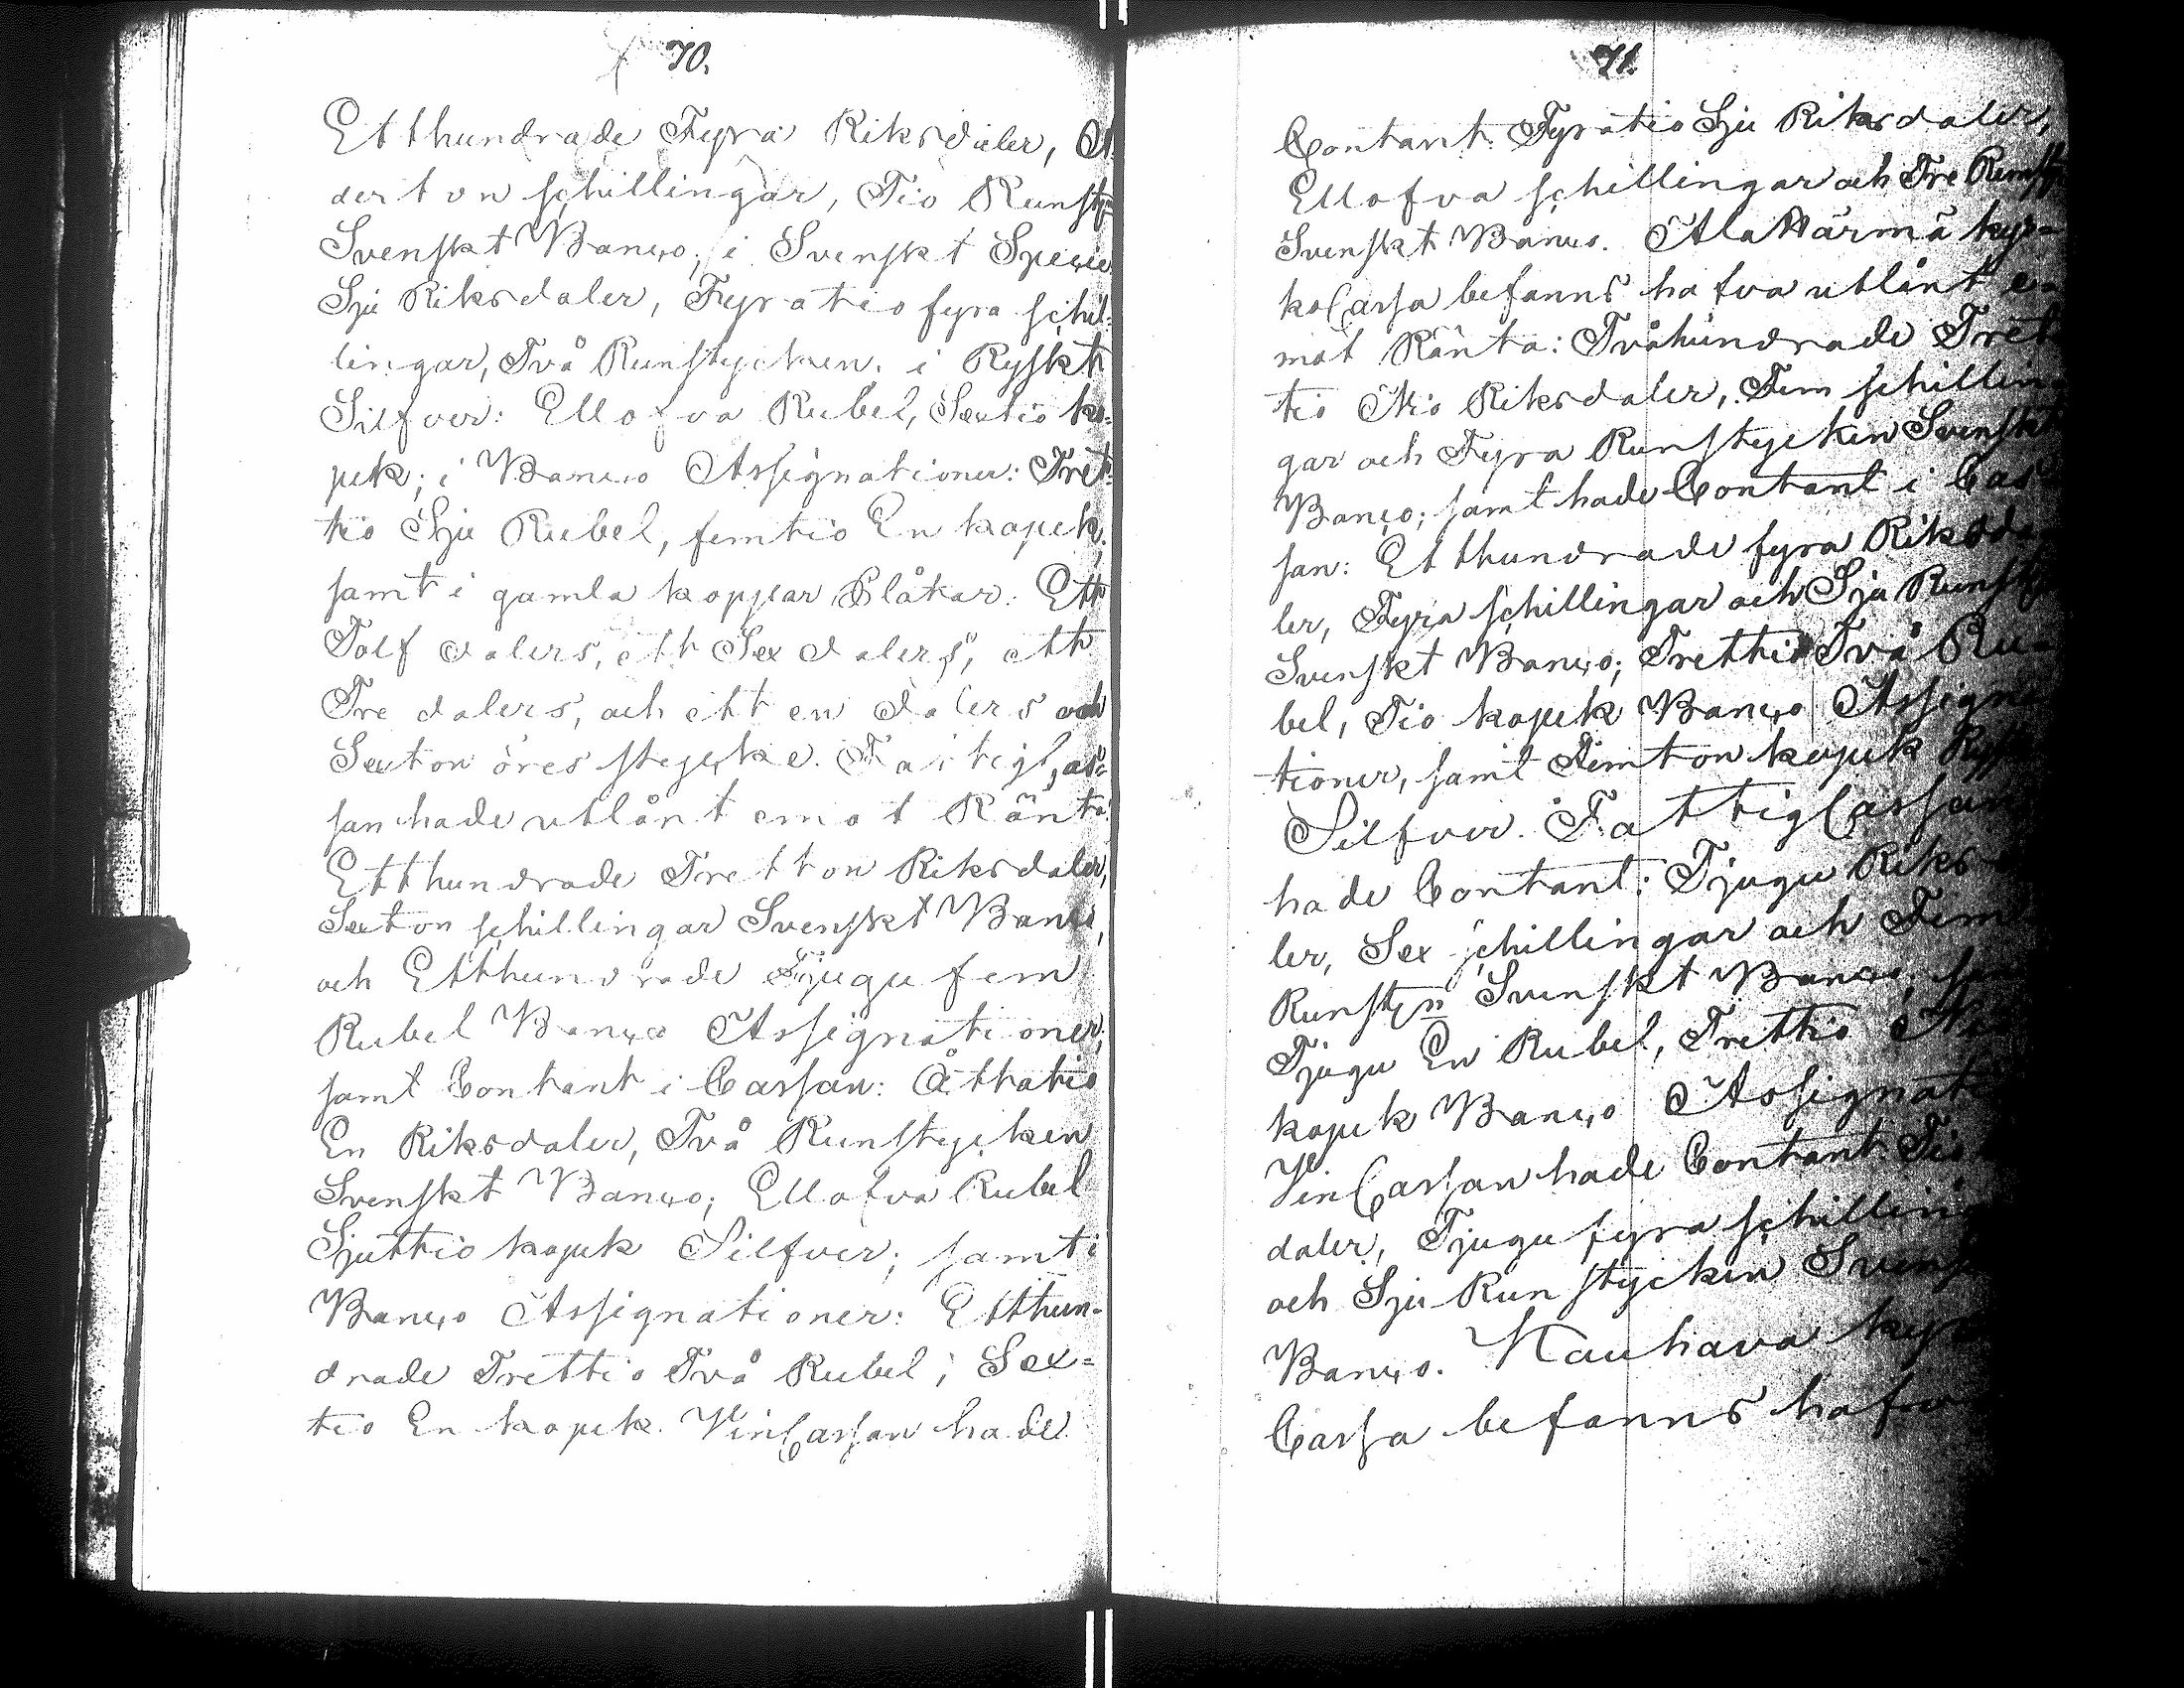 70.
Etthundrade Fyra Riksdaler, A
derton schillingar, Tio Runst
Svenskt Banco; i Svenskt Specie
Sju Riksdaler, Fyratio fyra schil=
lingar, Två Runstycken. i Ryskt
Silfver: Ellofva Rubel, Sextio ko=
pek; i Banco Assignationer: Tret=
tio Sju Rubel, femtio En kopek;
samt i gamla koppar Plåtar: Ett
Tolf dalers, ett Sex dalers, ett
Tre dalers, och ett en dalers och
Sexton öres stycke. Fattigcas=
san hade utlånt emot Ränta
Etthundrade Tretton Riksdaler,
Sexton schillingar Svenskt Banco,
och Etthundrade Tjugu fem
Rubel Banco Assignationer,
samt Contant i Cassan: Åttatio
En Riksdaler, Två Runstycken
Svenskt Banco; Ellofva Rubel
Sjuttio kopek Silfver; samt i
Banco Assignationer: Etthun=
drade Trettio Två Rubel; Sex=
tio En kopek. VinCassan hade
71.
Contant: Fyratio Sju Riksdaler,
Ellofva schillingar och Tre Runst
Svenskt Banco. AlaHärmä kyr=
koCassa befanns hafva utlånt e=
mot Ränta: Tvåhundrade Tret
tio Nio Riksdaler, Fem schillin
gar och Fyra Runstycken Svenskt
Banco; samt hade Contant i Cas
san: Etthundrade fyra Riksda
ler, Fyra schillingar och Sju Runsty
Svenskt Banco; Trettio Två Ru=
bel, Tio kopek Banco Assigna
tioner, samt Femton kopek Rys
Silfver. FattigCassan
hade Contant: Tjugu Riks
ler, Sex schillingar och Fem
Runsty Svenskt Banco;
Tjugu En Rubel, Trettio
kopek Banco Assignat
VinCassan hade Contant: Tio
daler, Tjugu fyra schilling
och Sju Runstycken Svensk
Banco. Kauhava kyr
Cassa befanns hafva